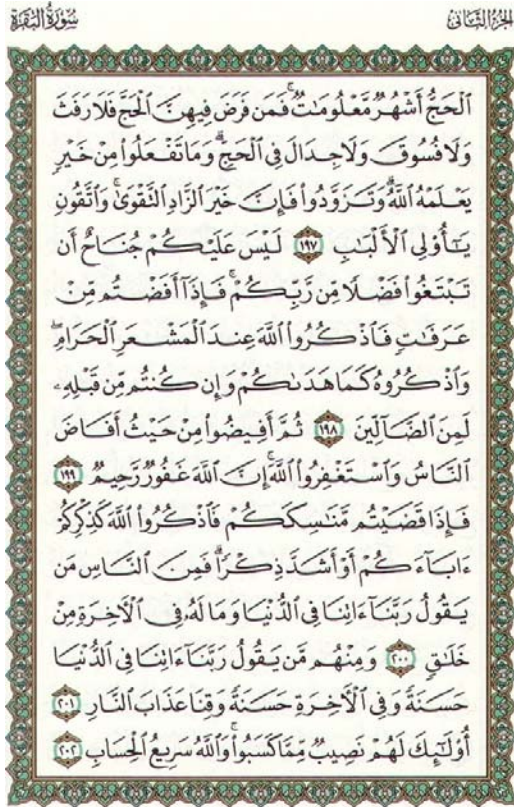 الجزء الثاني
سورة البقرة
ٱلۡحَجُّ أَشۡهُرٌ مَّعۡلُومَٰتٌۚ فَمَن فَرَضَ فِيهِنَّ ٱلۡحَجَّ فَلَا رَفَثَ
وَلَا فُسُوقَ وَلَا جِدَالَ فِي ٱلۡحَجِّۗ وَمَا تَفۡعَلُواْ مِنۡ خَيۡرٍ
يَعۡلَمۡهُ ٱللَّهُۗ وَتَزَوَّدُواْ فَإِنَّ خَيۡرَ ٱلزَّادِ ٱلتَّقۡوَىٰۚ وَٱتَّقُونِ
يَٰٓأُوْلِي ٱلۡأَلۡبَٰبِ ١٩٧ لَيۡسَ عَلَيۡكُمۡ جُنَاحٌ أَن
تَبۡتَغُواْ فَضۡلٗا مِّن رَّبِّكُمۡۚ فَإِذَآ أَفَضۡتُم مِّنۡ
عَرَفَٰتٖ فَٱذۡكُرُواْ ٱللَّهَ عِندَ ٱلۡمَشۡعَرِ ٱلۡحَرَامِۖ
وَٱذۡكُرُوهُ كَمَا هَدَىٰكُمۡ وَإِن كُنتُم مِّن قَبۡلِهِۦ
لَمِنَ ٱلضَّآلِّينَ ١٩٨ ثُمَّ أَفِيضُواْ مِنۡ حَيۡثُ أَفَاضَ
ٱلنَّاسُ وَٱسۡتَغۡفِرُواْ ٱللَّهَۚ إِنَّ ٱللَّهَ غَفُورٞ رَّحِيمٞ ١٩٩
فَإِذَا قَضَيۡتُم مَّنَٰسِكَكُمۡ فَٱذۡكُرُواْ ٱللَّهَ كَذِكۡرِكُمۡ
ءَابَآءَكُمۡ أَوۡ أَشَدَّ ذِكۡرٗاۗ فَمِنَ ٱلنَّاسِ مَن
يَقُولُ رَبَّنَآ ءَاتِنَا فِي ٱلدُّنۡيَا وَمَا لَهُۥ فِي ٱلۡأٓخِرَةِ مِنۡ
خَلَٰقٖ ٢٠٠ وَمِنۡهُم مَّن يَقُولُ رَبَّنَآ ءَاتِنَا فِي ٱلدُّنۡيَا
حَسَنَةٗ وَفِي ٱلۡأٓخِرَةِ حَسَنَةٗ وَقِنَا عَذَابَ ٱلنَّارِ ٢٠١
أُوْلَٰٓئِكَ لَهُمۡ نَصِيبٞ مِّمَّا كَسَبُواْۚ وَٱللَّهُ سَرِيعُ ٱلۡحِسَابِ ٢٠٢